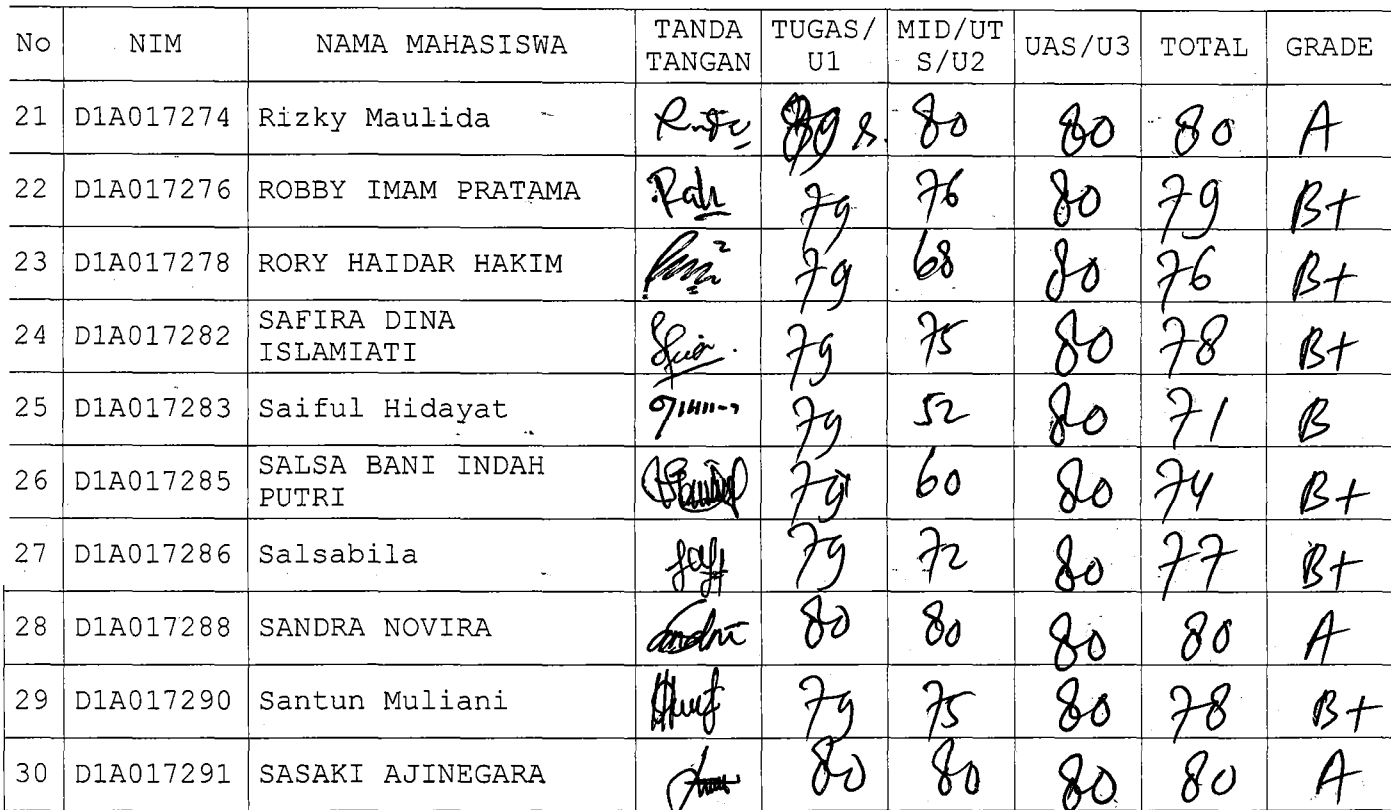 No NIM NAMA MAHASISWA TANDA TANGAN TUGAS/U1 MID/UTS/U2 UAS/U3 TOTAL GRADE
21 D1A017274 Rizky Maulida 80 80 80 A
22 D1A017276 ROBBY IMAM PRATAMA 79 76 80 79 B+
23 D1A017278 RORY HAIDAR HAKIM 79 68 80 76 B+
24 D1A017282 SAFIRA DINA ISLAMIATI 79 75 80 78 B+
25 D1A017283 Saiful Hidayat 79 52 80 71 B
26 D1A017285 SALSA BANI INDAH PUTRI 79 60 80 74 B+
27 D1A017286 Salsabila 79 72 80 77 B+
28 D1A017288 SANDRA NOVIRA 80 80 80 80 A
29 D1A017290 Santun Muliani 79 75 80 78 B+
30 D1A017291 SASAKI AJINEGARA 80 80 80 80 A